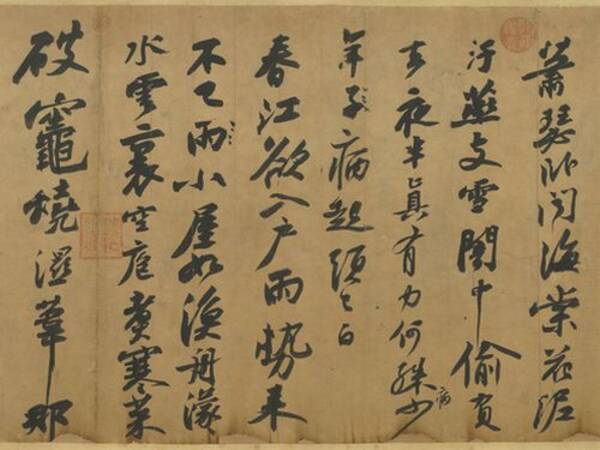 蕭瑟臥聞海棠花泥
汙燕支雪闇中偷負
去夜半真有力何殊病少
年子病起頭已白
春江欲入戶雨勢來
不已雨小屋如漁舟濛
水雲裏空庖煮寒菜
破竈燒濕葦那